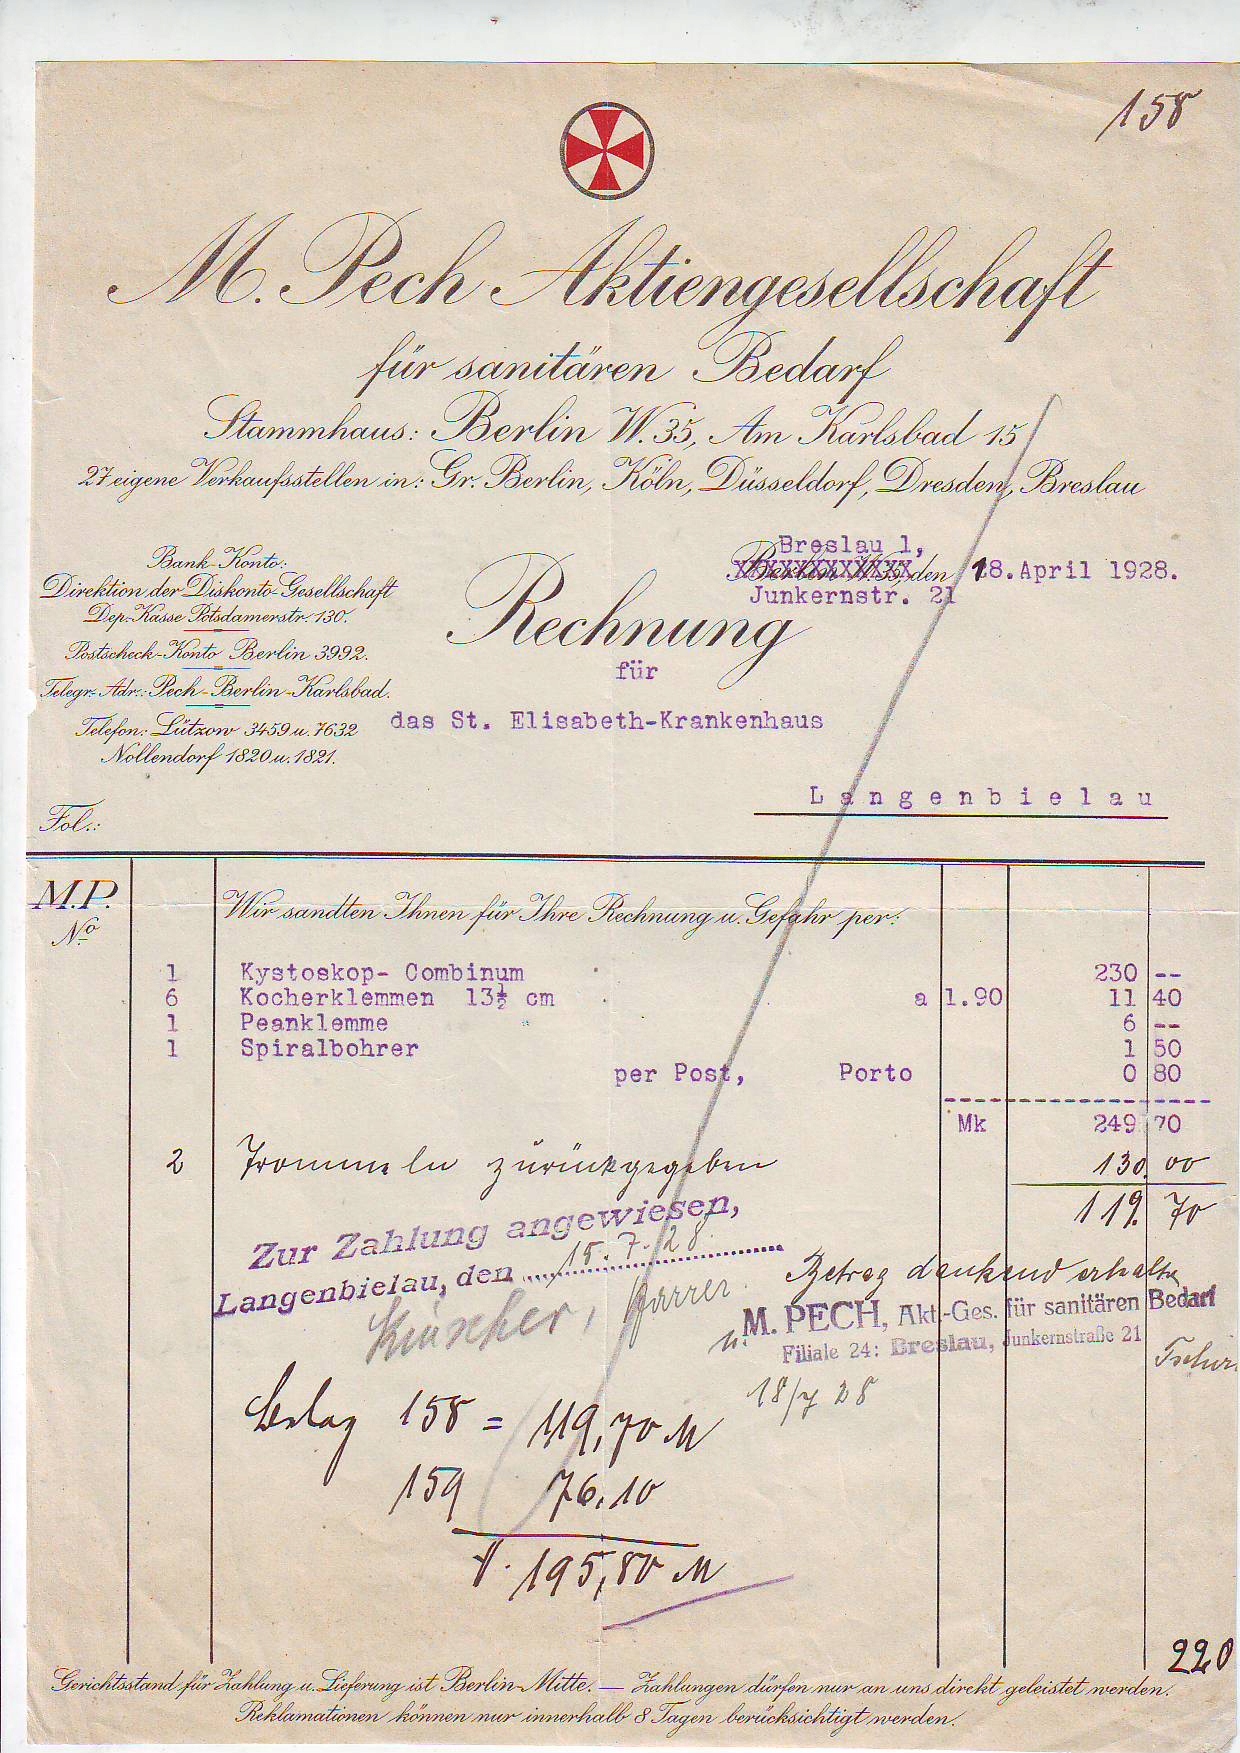 158
M. Pech Aktiengesellschaft
für sanitären Bedarf
Stammhaus: Berlin W. 35, Am Karlsbad 15
27 eigene Verkaufsstellen in: Gr. Berlin, Köln, Düsseldorf, Dresden, Breslau
Breslau 1,
Berlin W. 35, den 18. April 1928.
Junkernstr. 21
Bank-Konto:
Direktion der Diskonto-Gesellschaft
Dep.-Kasse Potsdamerstr. 130.
Postscheck-Konto Berlin 3992.
Telegr.-Adr.: Pech-Berlin-Karlsbad.
Telefon: Lützow 3459 u. 7632
Nollendorf 1820 u. 1821.
Rechnung
für
das St. Elisabeth-Krankenhaus
Langenbielau
Fol.:
M.P. Wir sandten Ihnen für Ihre Rechnung u. Gefahr per:
No
1 Kystoskop- Combinum 230 --
6 Kocherklemmen 13½ cm a 1.90 11 40
1 Peanklemme 6 --
1 Spiralbohrer 1 50
per Post, Porto 0 80
Mk 249 70
2 Trommeln zurückgegeben 130. 00
119. 70
Zur Zahlung angewiesen,
Langenbielau, den 15. 7. 28.
Pfarrer.
Betrag dankend erhalten
M. PECH, Akt.-Ges. für sanitären Bedarf
Filiale 24: Breslau, Junkernstraße 21
18/7 28
Belag 158 = 119,70 M
159 76,10
195,80 M
220
Gerichtsstand für Zahlung u. Lieferung ist Berlin-Mitte. — Zahlungen dürfen nur an uns direkt geleistet werden.
Reklamationen können nur innerhalb 8 Tagen berücksichtigt werden.